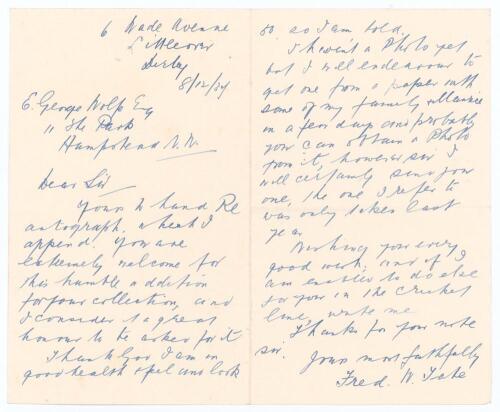 6 Wade Avenue
Littleover
Derby
8/12/34
E. George Wolfe Esq
11 The Park
Hampstead N.W.
Dear Sir
Yours to hand Re
autograph, wheat I
append. You are
extremely welcome for
this humble addition
for your collection, and
I consider it a great
honour to be asked for it
Thank God I am in
good health & feel and look
so. so I am told.
I havent a Photo yet
but I will endeavour to
get one from a paper with
some of my family
in a few days and probably
you can obtain a Photo
from it, however sir I
will certainly send you
one, the one I refer to
was only taken last
year
Wishing you every
good wish, and if I
am enabled to do else
for you in the Cricket
line, write me
Thanks for your note
sir.
Yours most faithfully
Fred. W. Tate